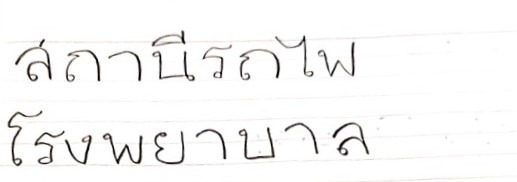 สถานีรถไฟ
โรงพยาบาล